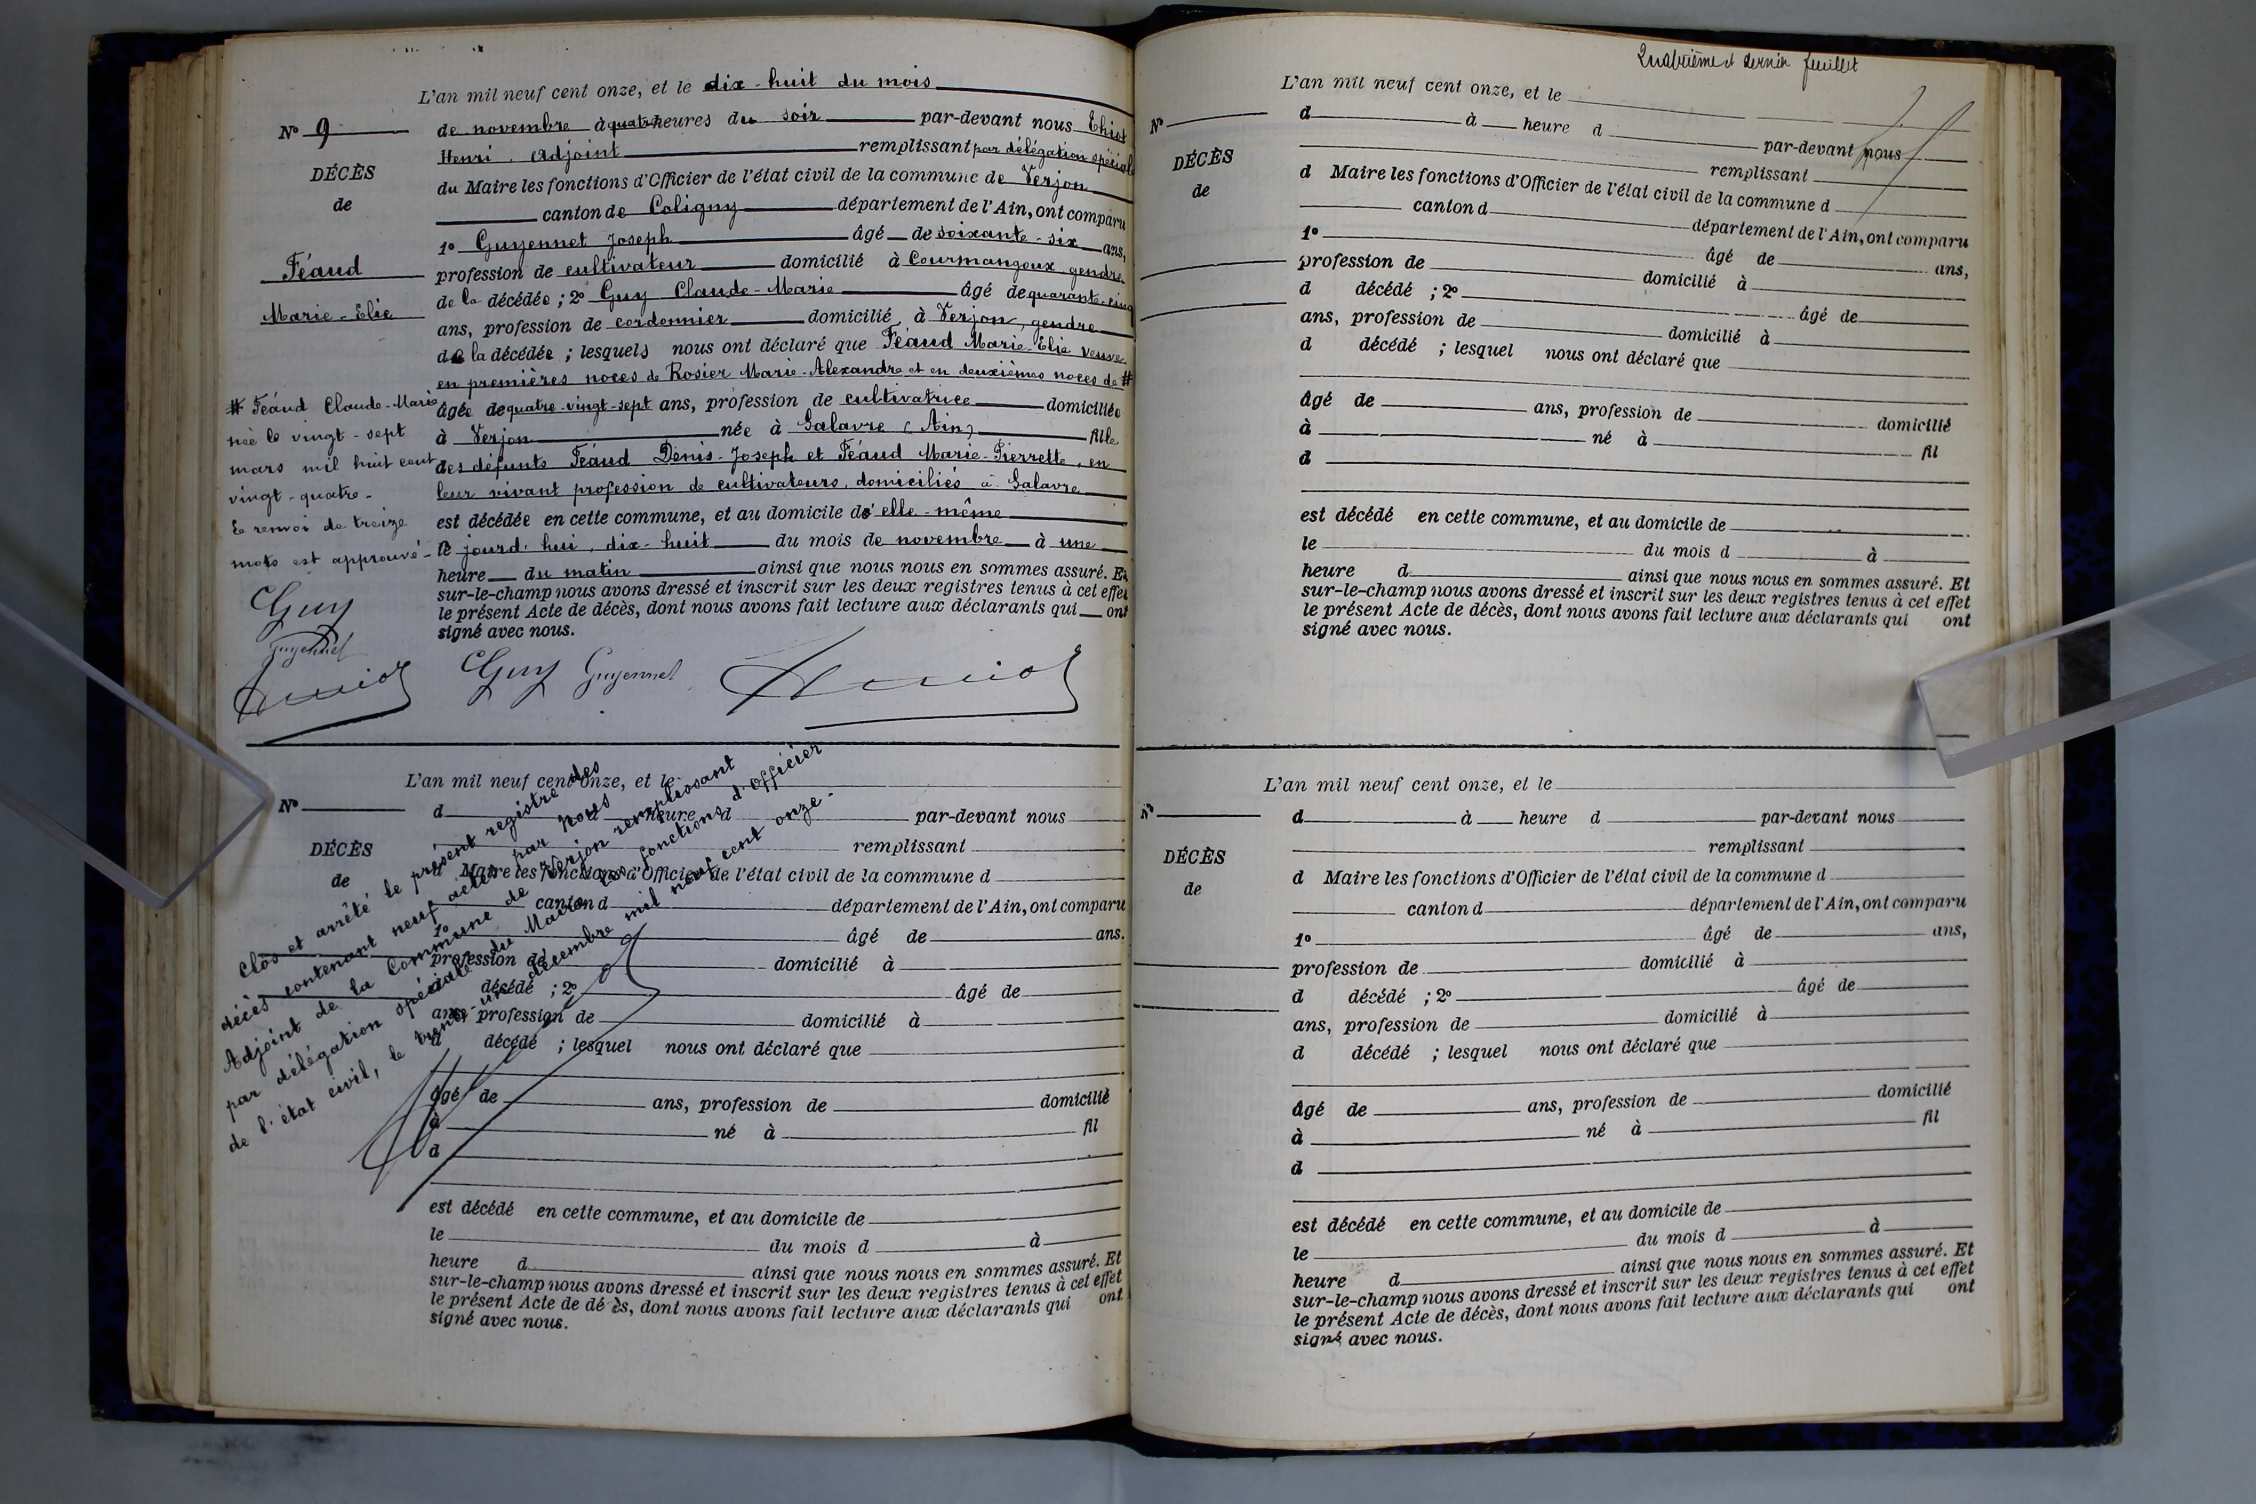 L'an mil neuf cent onze, et le dix-huit du mois
N° 9
de novembre à quatre heures du soir par-devant nous
Henri, Adjoint remplissant par délégation spéciale
DÉCÈS
du Maire les fonctions d'Officier de l'état civil de la commune de Verjon
de
canton de Coligny département de l'Ain, ont comparu
1° Guyennet Joseph âgé de soixante-six ans,
Féaud
profession de cultivateur domicilié à Courmangoux gendre
de la décédée ; 2° Guy Claude-Marie âgé de quarante-cinq
Marie-Elie
ans, profession de cordonnier domicilié à Verjon, gendre
de la décédée ; lesquels nous ont déclaré que Féaud Marie-Elie veuve
en premières noces de Rosier Marie-Alexandre et en deuxièmes noces de #
# Féaud Claude-Marie
âgée de quatre-vingt-sept ans, profession de cultivatrice domiciliée
née le vingt-sept
à Verjon née à Salavre (Ain) fille
mars mil huit cent
des défunts Féaud Denis-Joseph et Féaud Marie-Pierrette, en
vingt-quatre-
leur vivant profession de cultivateurs, domiciliés à Salavre
Le renvoi de treize
est décédée en cette commune, et au domicile d'elle-même
mots est approuvé-
le jourd'hui, dix-huit du mois de novembre à une
heure du matin ainsi que nous nous en sommes assuré. Et
sur-le-champ nous avons dressé et inscrit sur les deux registres tenus à cet effet
le présent Acte de décès, dont nous avons fait lecture aux déclarants qui ont
signé avec nous.
CGuy
Guyennet
CGuy Guyennet
L'an mil neuf cent onze, et le
N°
d à heure d par-devant nous
remplissant
DÉCÈS
d Maire les fonctions d'Officier de l'état civil de la commune d
de
canton d département de l'Ain, ont comparu
1° âgé de ans.
profession de domicilié à
d décédé ; 2° âgé de
ans, profession de domicilié à
d décédé ; lesquel nous ont déclaré que
âgé de ans, profession de domicilié
à né à fil
d
est décédé en cette commune, et au domicile de
le du mois d à
heure d ainsi que nous nous en sommes assuré. Et
sur-le-champ nous avons dressé et inscrit sur les deux registres tenus à cet effet
le présent Acte de dé ès, dont nous avons fait lecture aux déclarants qui ont
signé avec nous.
Clos et arrêté le présent registre des
décès contenant neuf actes par nous
Adjoint de la Commune de Verjon remplissant
par délégation spéciale du Maire les fonctions d'Officier
de l'état civil, le trente-un décembre mil neuf cent onze.
Quatrième et dernier feuillet
L'an mil neuf cent onze, et le
N°
d à heure d
par-devant nous
DÉCÈS
remplissant
de
d Maire les fonctions d'Officier de l'état civil de la commune d
canton d département de l'Ain, ont comparu
1° âgé de ans,
profession de domicilié à
d décédé ; 2° âgé de
ans, profession de domicilié à
d décédé ; lesquel nous ont déclaré que
âgé de ans, profession de domicilié
à né à fil
d
est décédé en cette commune, et au domicile de
le du mois d à
heure d ainsi que nous nous en sommes assuré. Et
sur-le-champ nous avons dressé et inscrit sur les deux registres tenus à cet effet
le présent Acte de décès, dont nous avons fait lecture aux déclarants qui ont
signé avec nous.
L'an mil neuf cent onze, et le
N°
d à heure d par-devant nous
remplissant
DÉCÈS
d Maire les fonctions d'Officier de l'état civil de la commune d
de
canton d département de l'Ain, ont comparu
1° âgé de ans,
profession de domicilié à
d décédé ; 2° âgé de
ans, profession de domicilié à
d décédé ; lesquel nous ont déclaré que
âgé de ans, profession de domicilié
à né à fil
d
est décédé en cette commune, et au domicile de
le du mois d à
heure d ainsi que nous nous en sommes assuré. Et
sur-le-champ nous avons dressé et inscrit sur les deux registres tenus à cet effet
le présent Acte de décès, dont nous avons fait lecture aux déclarants qui ont
signé avec nous.